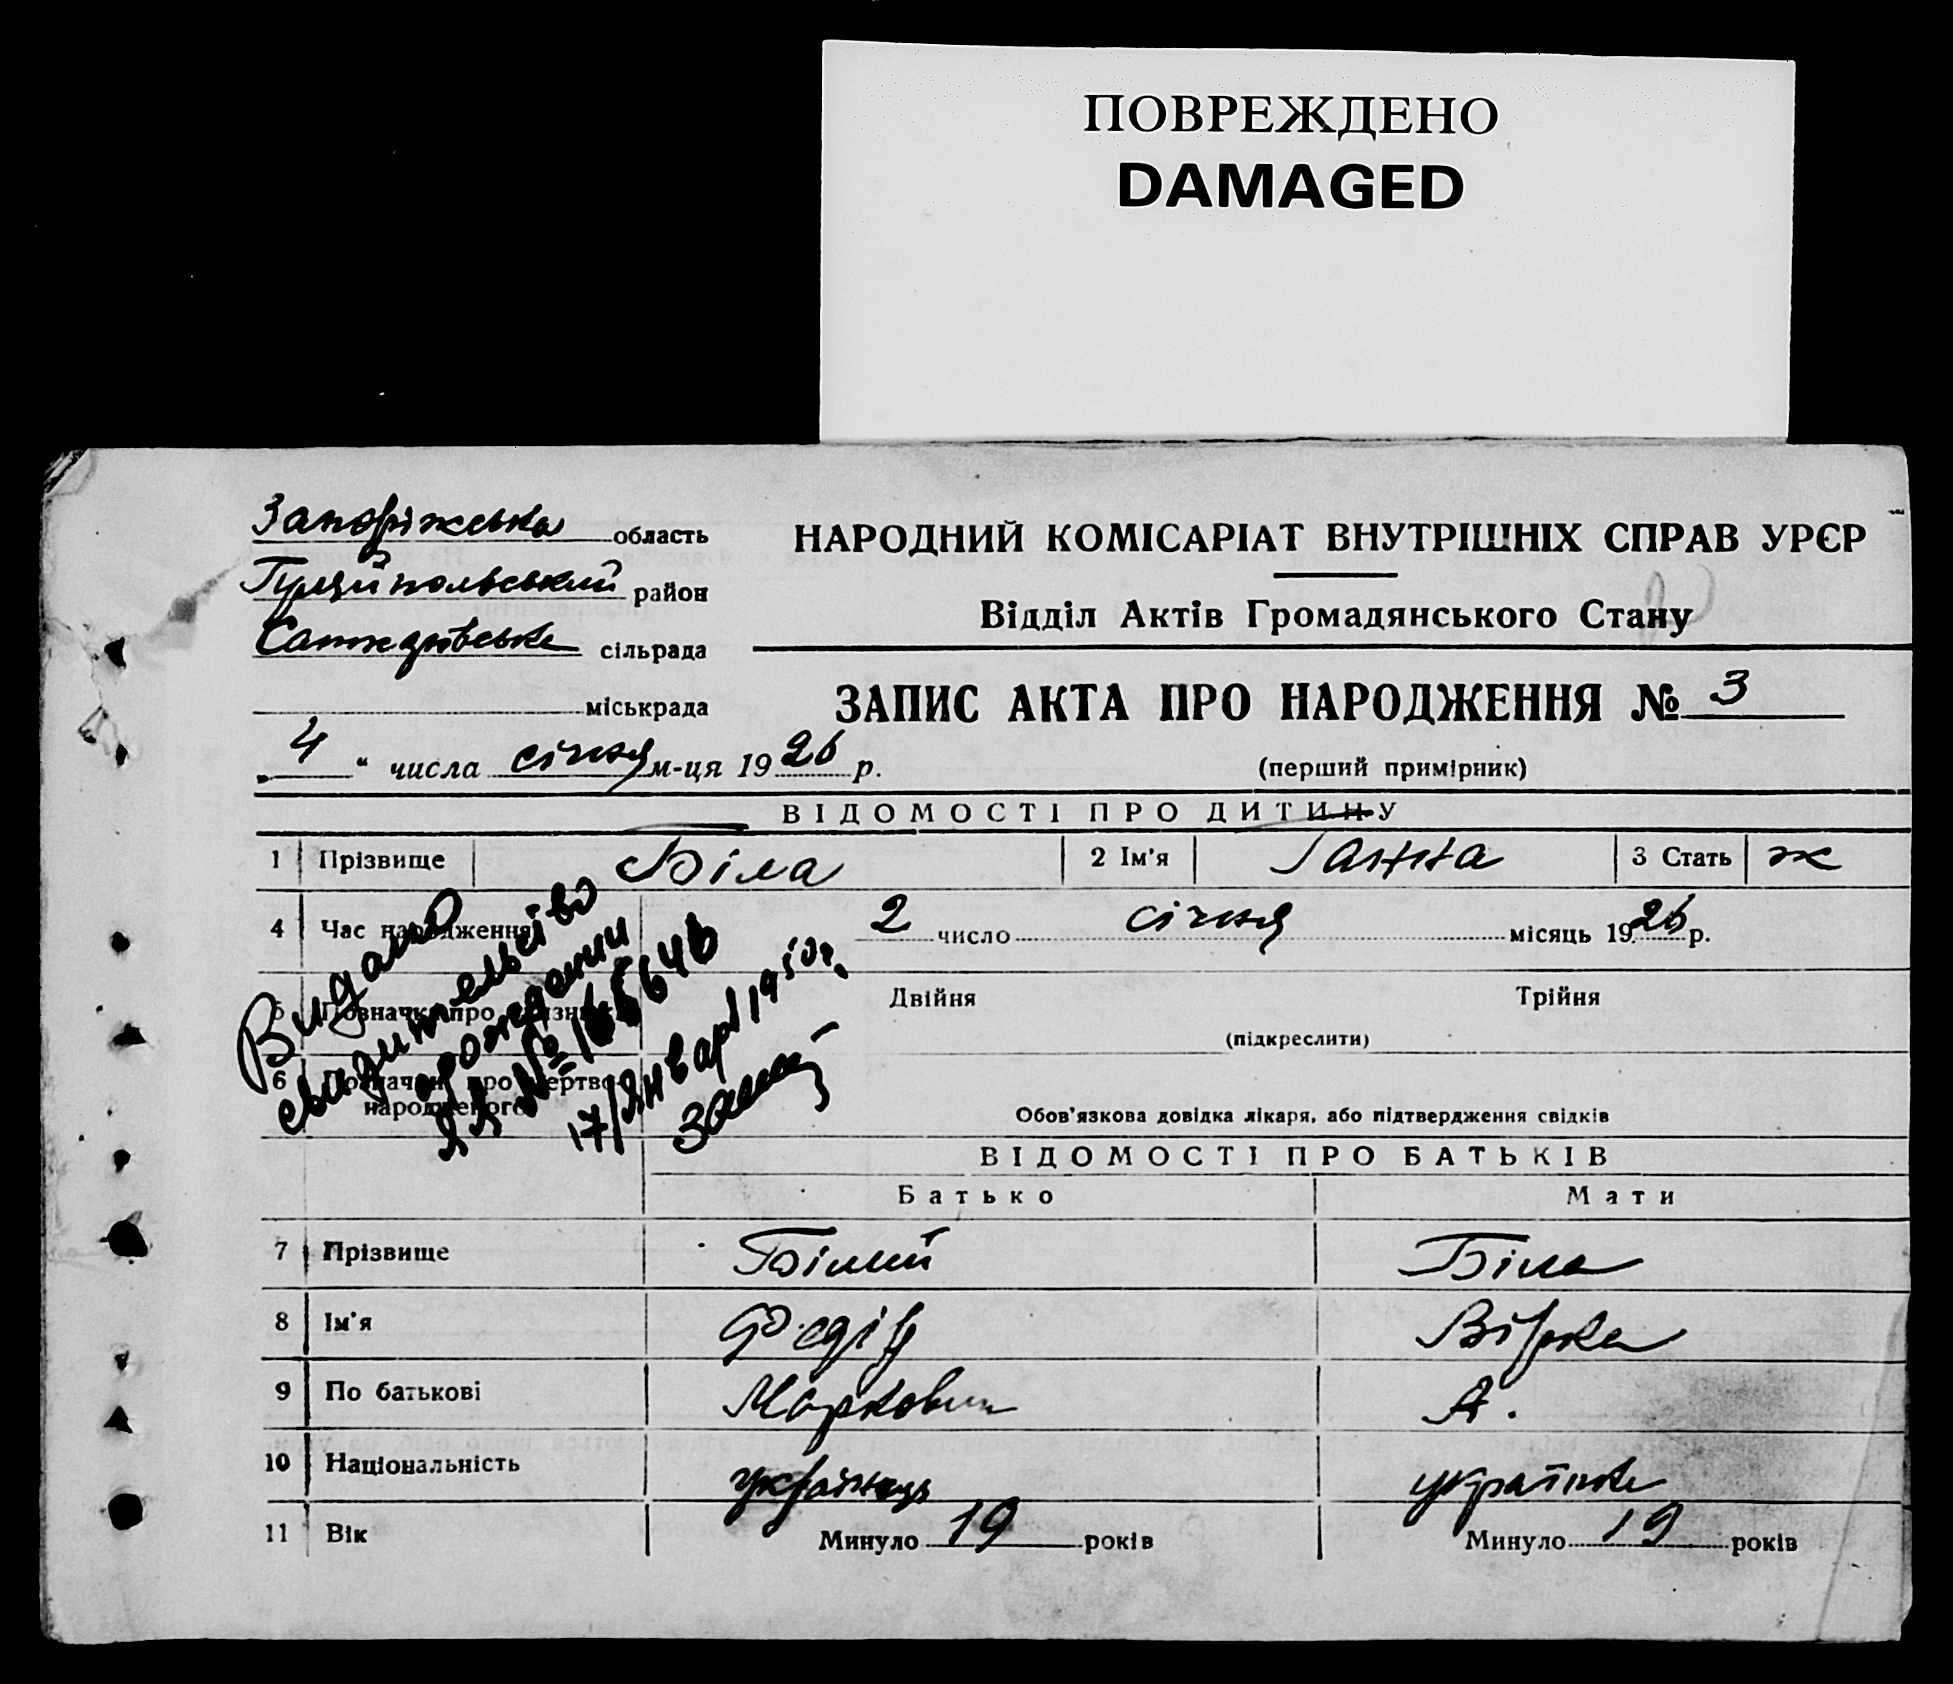 ПОВРЕЖДЕНО
DAMAGED
Запоріжська область
Гуляйпольський район
сільрада
міськрада
НАРОДНИЙ КОМІСАРІАТ ВНУТРІШНІХ СПРАВ УРЄР
Відділ Актів Громадянського Стану
ЗАПИС АКТА ПРО НАРОДЖЕННЯ № 3
„4“ числа січня м-ця 1926 р.
(перший примірник)
ВІДОМОСТІ ПРО ДИТИНУ
1 Прізвище Біла 2 Ім'я Ганна 3 Стать ж
4 Час народження 2 число січня місяць 1926 р.
5 Позначка про
Двійня Трійня
(підкреслити)
6 Позначка про мертво-
народженого
Обов'язкова довідка лікаря, або підтвердження свідків
Видано
свидительство
о рождении
ЯЯ №
17/Январ 1950 г.
ВІДОМОСТІ ПРО БАТЬКІВ
Батько Мати
7 Прізвище Білий Біла
8 Ім'я Федір Вірка
9 По батькові Маркович А.
10 Національність українець українка
11 Вік Минуло 19 років Минуло 19 років